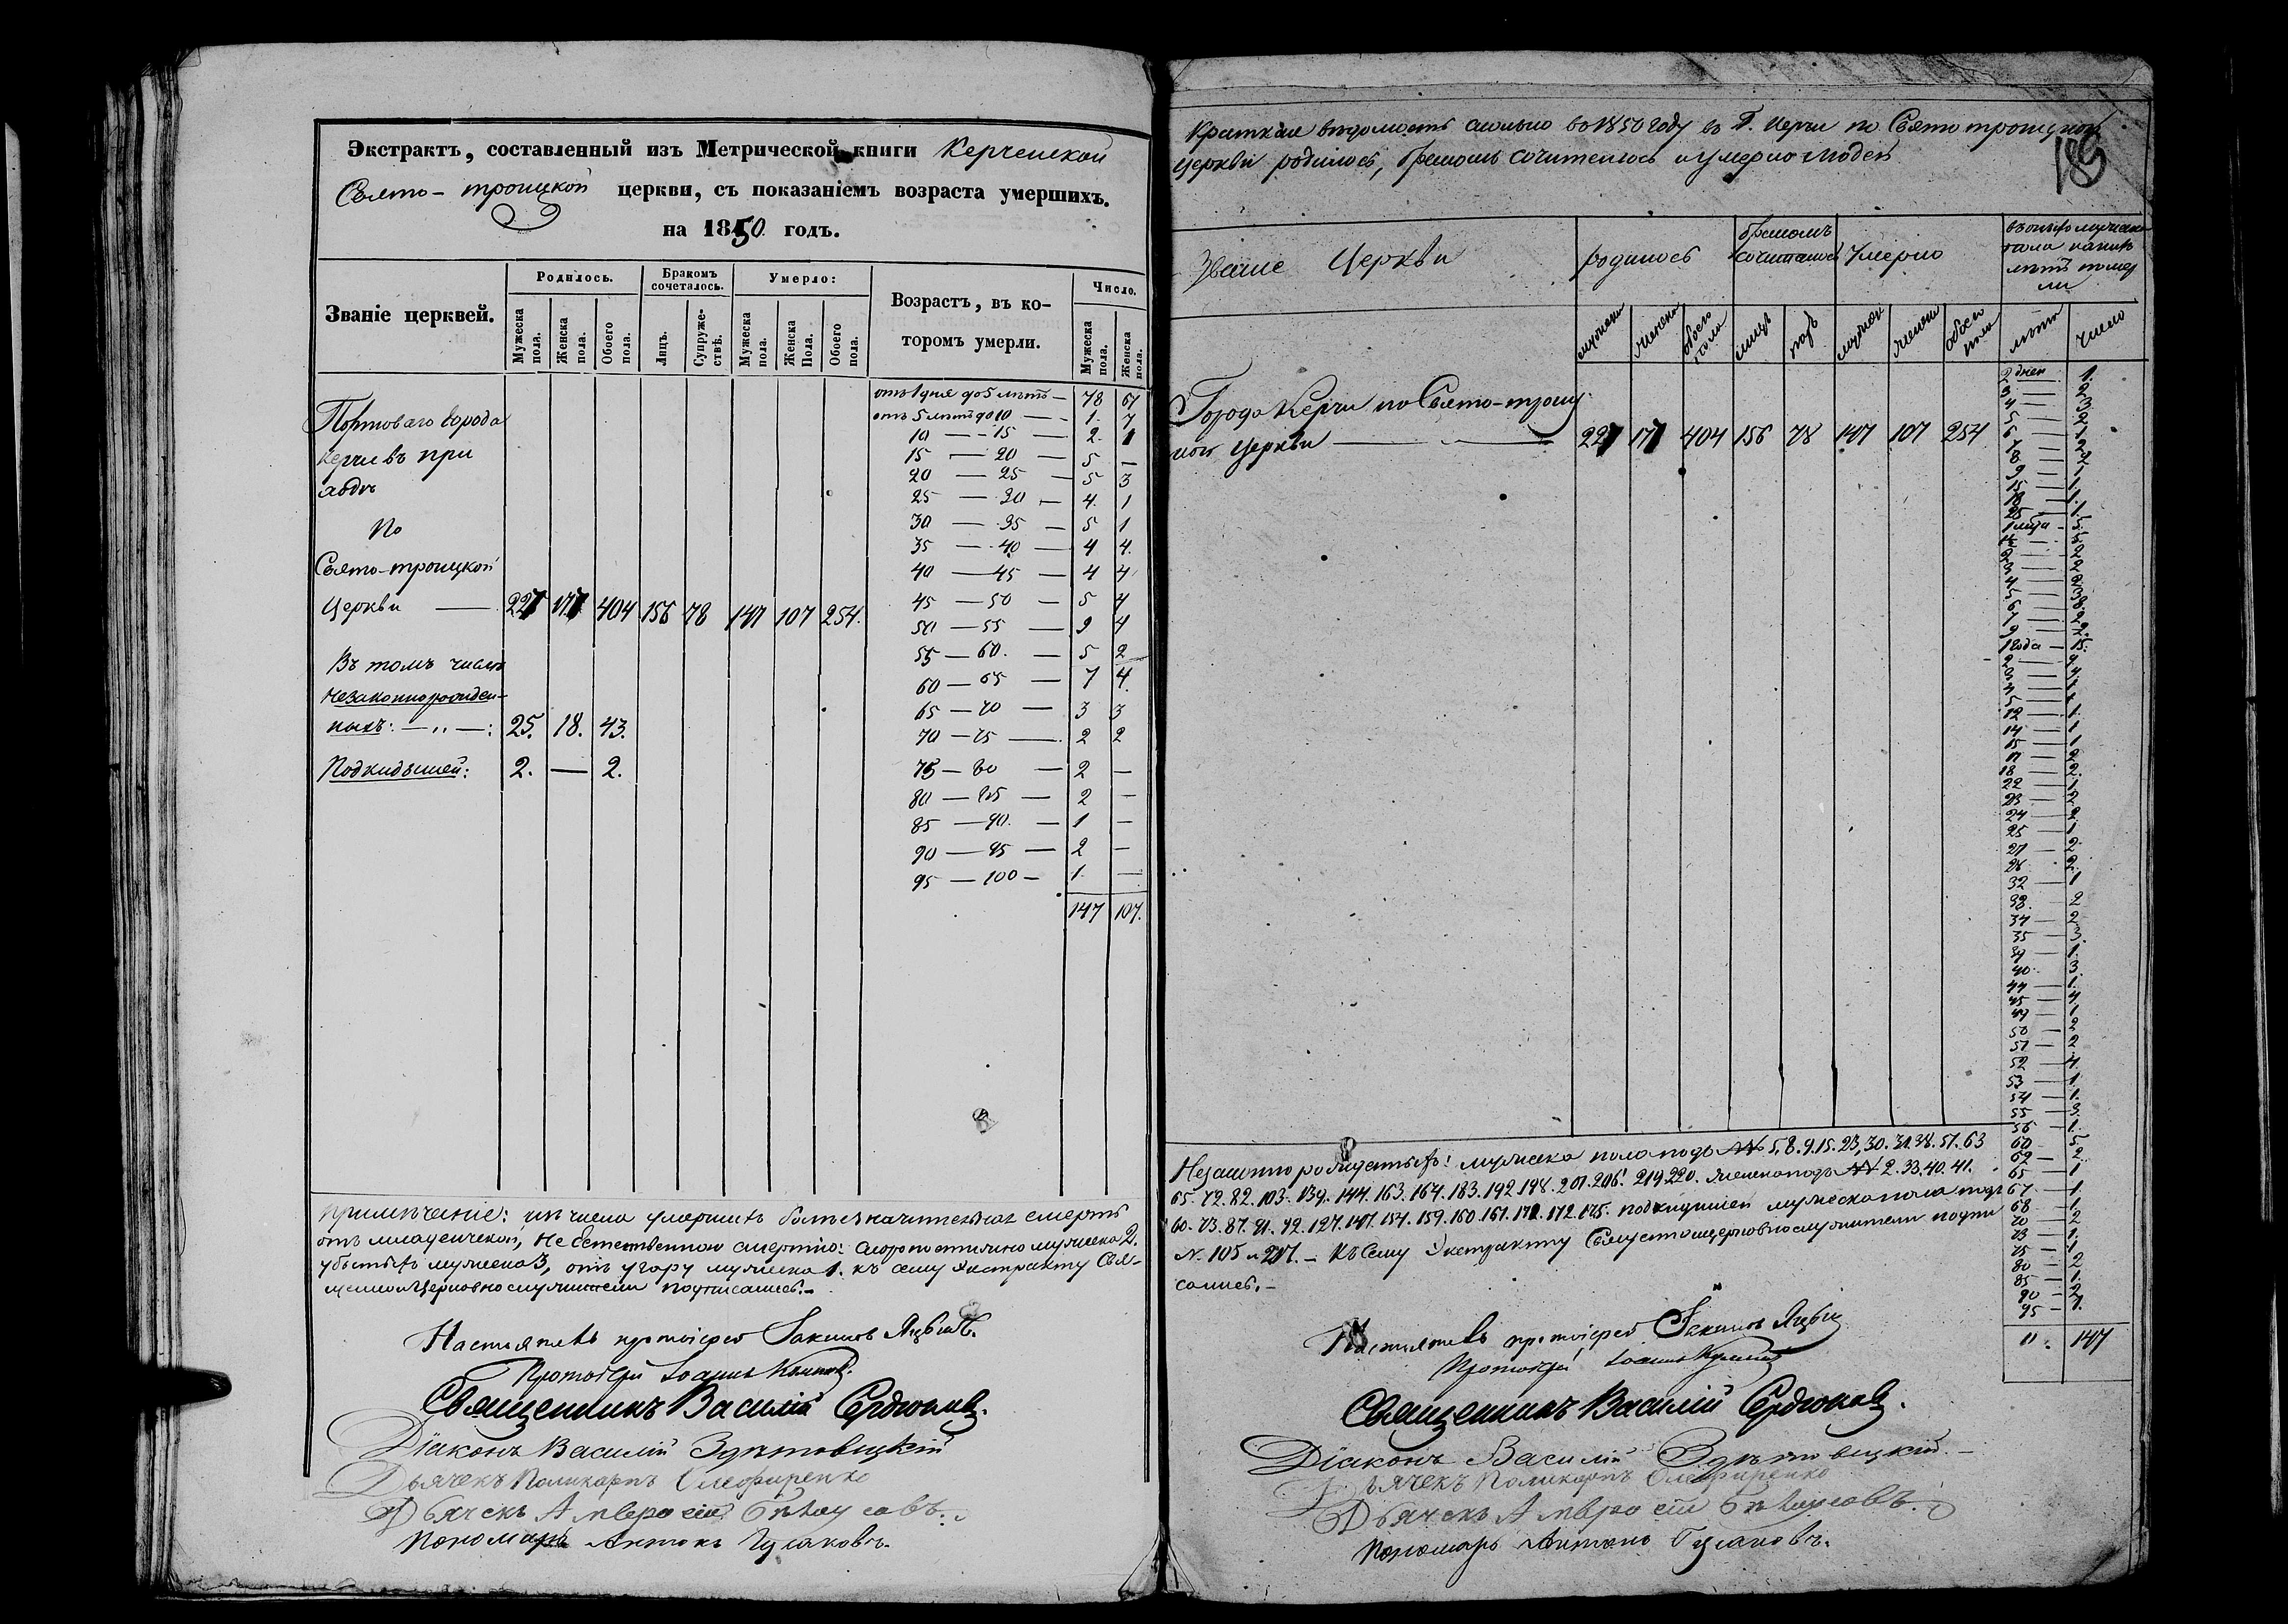 Экстрактъ, составленный изъ Метрической книги Керченской
Свято-троицкой церкви, съ показаніемъ возраста умершихъ.
на 1850 годъ.
Званіе церквей.
Родилось.
Бракомъ сочеталось.
Умерло:
Возрастъ, въ ко-
торомъ умерли.
Число.
Мужеска пола.
Женска пола.
Обоего пола.
Лицъ.
Супруже-ствъ.
Мужеска пола.
Женска Пола.
Обоего пола.
Мужеска пола.
Женска пола.
Портоваго города
Керчи въ при
ходѣ
По
Свято-троицкой
Церкви — 227 177 404 156 78 147 107 254.
Въ томъ числѣ
Незаконнорожден-
ныхъ: — „ —: 25. 18. 43.
Подкидышей: 2. — 2.
отъ 1 дня до 5 лѣтъ — 78 67
отъ 5 лѣтъ до 10 — 1. 7
10 — 15 — 2. 1
15 — 20 — 5 —
20 — 25 — 5 3
25 — 30 — 4. 1
30 — 35 — 5 1
35 — 40 — 4 4.
40 — 45 — 4 4
45 — 50 — 5 4
50 — 55 — 9 4
55 — 60. — 5 2
60 — 65 — 7 4.
65 — 70 — 3 3
70 — 75 — 2 2
75 — 80 — 2 —
80 — 85 — 2 —
85 — 90. — 1 —
90 — 95 — 2 —
95 — 100 — 1. —
147 107.
Примѣчаніе: изъ числа умершихъ болѣе значительная смерть
отъ младенческой, Не естественною смертію: скоропостижно мужеска 2.
убитыхъ мужеска 3, отъ угару мужеска 1. къ сему экстракту Свя-
щенноцерковнослужители подписались.—
Настоятель протоіерей Іакинѳъ
Протоіерей Іоаннъ
Священникъ Василій Сердюковъ.
Діаконъ Василій
Дьячекъ Поликарпъ Олефиренко
Дьячекъ Амвросій Бѣлоусовъ.
Пономарь Антонъ Гулаковъ.
Краткая вѣдомость сколько въ 1850 году въ Г. Керчи по Святотроицкой
Церкви родилось, бракомъ сочиталось и умерло людей
189
Званіе Церкви
родилось
бракомъ
сочиталось
Умерло
лѣтъ
число
Города Керчи по Свято-трои
кой Церкви — 227 177 404 156 78 147 107 254
2 дней — 1.
3 — 2
4 — 3
5 — 2
6 — 1
7 — 2
8 — 2
9 — 1
15 — 1.
18 — 1.
25 — 1.
12 — 1.
14 — 1
15 — 1
17 — 2
18 — 2.
22 — 1
23 — 2
24 — 2.
25 — 1
27 — 2
28. 2.
32 — 1
33. — 2
34 — 2
35 — 3.
39 — 1.
40. 3.
44 — 1.
45 — 4
49 — 1
50 — 2
51 — 2
52 — 4.
53 — 1.
54 — 1.
55 — 3.
56 — 1.
60 — 5.
62 — 2.
65 — 1
67. — 1.
68 — 1.
70 — 2
73 — 1.
75 — 1.
80 — 2
85 — 1.
90 — 2
95 — 1.
147
Незаконнорожденныхъ: мужеска пола подъ №№ 5. 8. 9. 15. 23, 30. 31. 38. 51. 63
65. 72. 82. 103. 139. 144. 163. 164. 183. 192. 198. 201. 206. 219. 220. женска подъ №№ 2. 33. 40. 41.
60. 73. 87. 91. 92. 127. 147. 154. 159. 160. 161. 171. 172. 175. подкидышей мужеска пола подъ
№. 105 и 217. — Къ сему экстракту Священноцерковнослужители подпи
сались. —
Настоятель протоіерей Іакинѳъ
Протоіерей Іоаннъ
Священникъ Василій Сердюковъ.
Діаконъ Василій
Дьячекъ Поликарпъ Олефиренко
Дьячекъ Амвросій Бѣлоусовъ.
Пономарь Антонъ Гулаковъ.